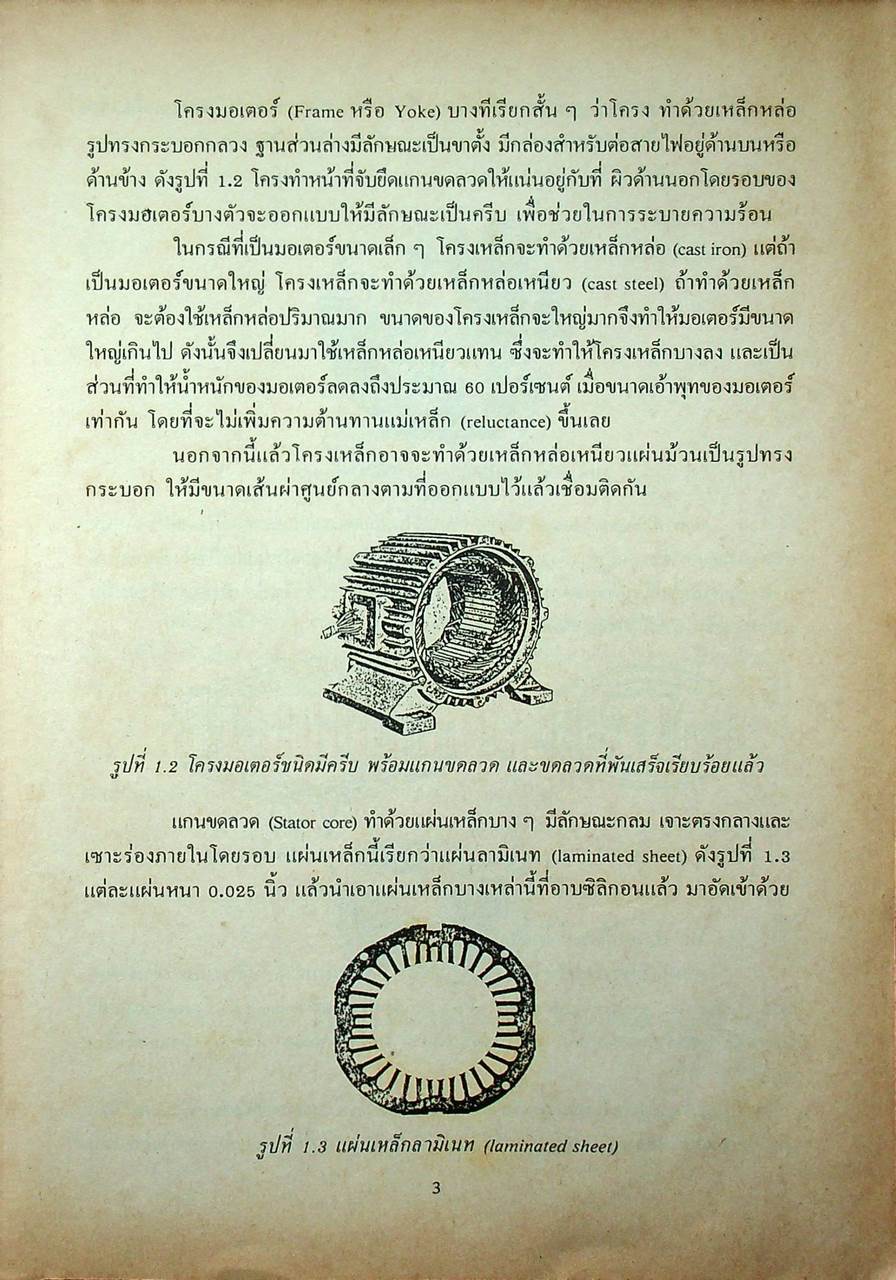 โครงมอเตอร์ (Frame หรือ Yoke) บางทีเรียกสั้น ๆ ว่าโครง ทำด้วยเหล็กหล่อ
รูปทรงกระบอกกลวง ฐานส่วนล่างมีลักษณะเป็นขาตั้ง มีกล่องสำหรับต่อสายไฟอยู่ด้านบนหรือ
ด้านข้าง ดังรูปที่ 1.2 โครงทำหน้าที่จับยึดแกนขดลวดให้แน่นอยู่กับที่ ผิวด้านนอกโดยรอบของ
โครงมอเตอร์บางตัวจะออกแบบให้มีลักษณะเป็นครีบ เพื่อช่วยในการระบายความร้อน
ในกรณีที่เป็นมอเตอร์ขนาดเล็ก ๆ โครงเหล็กจะทำด้วยเหล็กหล่อ (cast iron) แต่ถ้า
เป็นมอเตอร์ขนาดใหญ่ โครงเหล็กจะทำด้วยเหล็กหล่อเหนียว (cast steel) ถ้าทำด้วยเหล็ก
หล่อ จะต้องใช้เหล็กหล่อปริมาณมาก ขนาดของโครงเหล็กจะใหญ่มากจึงทำให้มอเตอร์มีขนาด
ใหญ่เกินไป ดังนั้นจึงเปลี่ยนมาใช้เหล็กหล่อเหนียวแทน ซึ่งจะทำให้โครงเหล็กบางลง และเป็น
ส่วนที่ทำให้น้ำหนักของมอเตอร์ลดลงถึงประมาณ 60 เปอร์เซนต์ เมื่อขนาดเอ้าพุทของมอเตอร์
เท่ากัน โดยที่จะไม่เพิ่มความต้านทานแม่เหล็ก (reluctance) ขึ้นเลย
นอกจากนี้แล้วโครงเหล็กอาจจะทำด้วยเหล็กหล่อเหนียวแผ่นม้วนเป็นรูปทรง
กระบอก ให้มีขนาดเส้นผ่าศูนย์กลางตามที่ออกแบบไว้แล้วเชื่อมติดกัน
รูปที่ 1.2 โครงมอเตอร์ชนิดมีครีบ พร้อมแกนขดลวด และขดลวดที่พันเสร็จเรียบร้อยแล้ว
แกนขดลวด (Stator core) ทำด้วยแผ่นเหล็กบาง ๆ มีลักษณะกลม เจาะตรงกลางและ
เซาะร่องภายในโดยรอบ แผ่นเหล็กนี้เรียกว่าแผ่นลามิเนท (laminated sheet) ดังรูปที่ 1.3
แต่ละแผ่นหนา 0.025 นิ้ว แล้วนำเอาแผ่นเหล็กบางเหล่านี้ที่อาบซิลิกอนแล้ว มาอัดเข้าด้วย
รูปที่ 1.3 แผ่นเหล็กลามิเนท (laminated sheet)
3